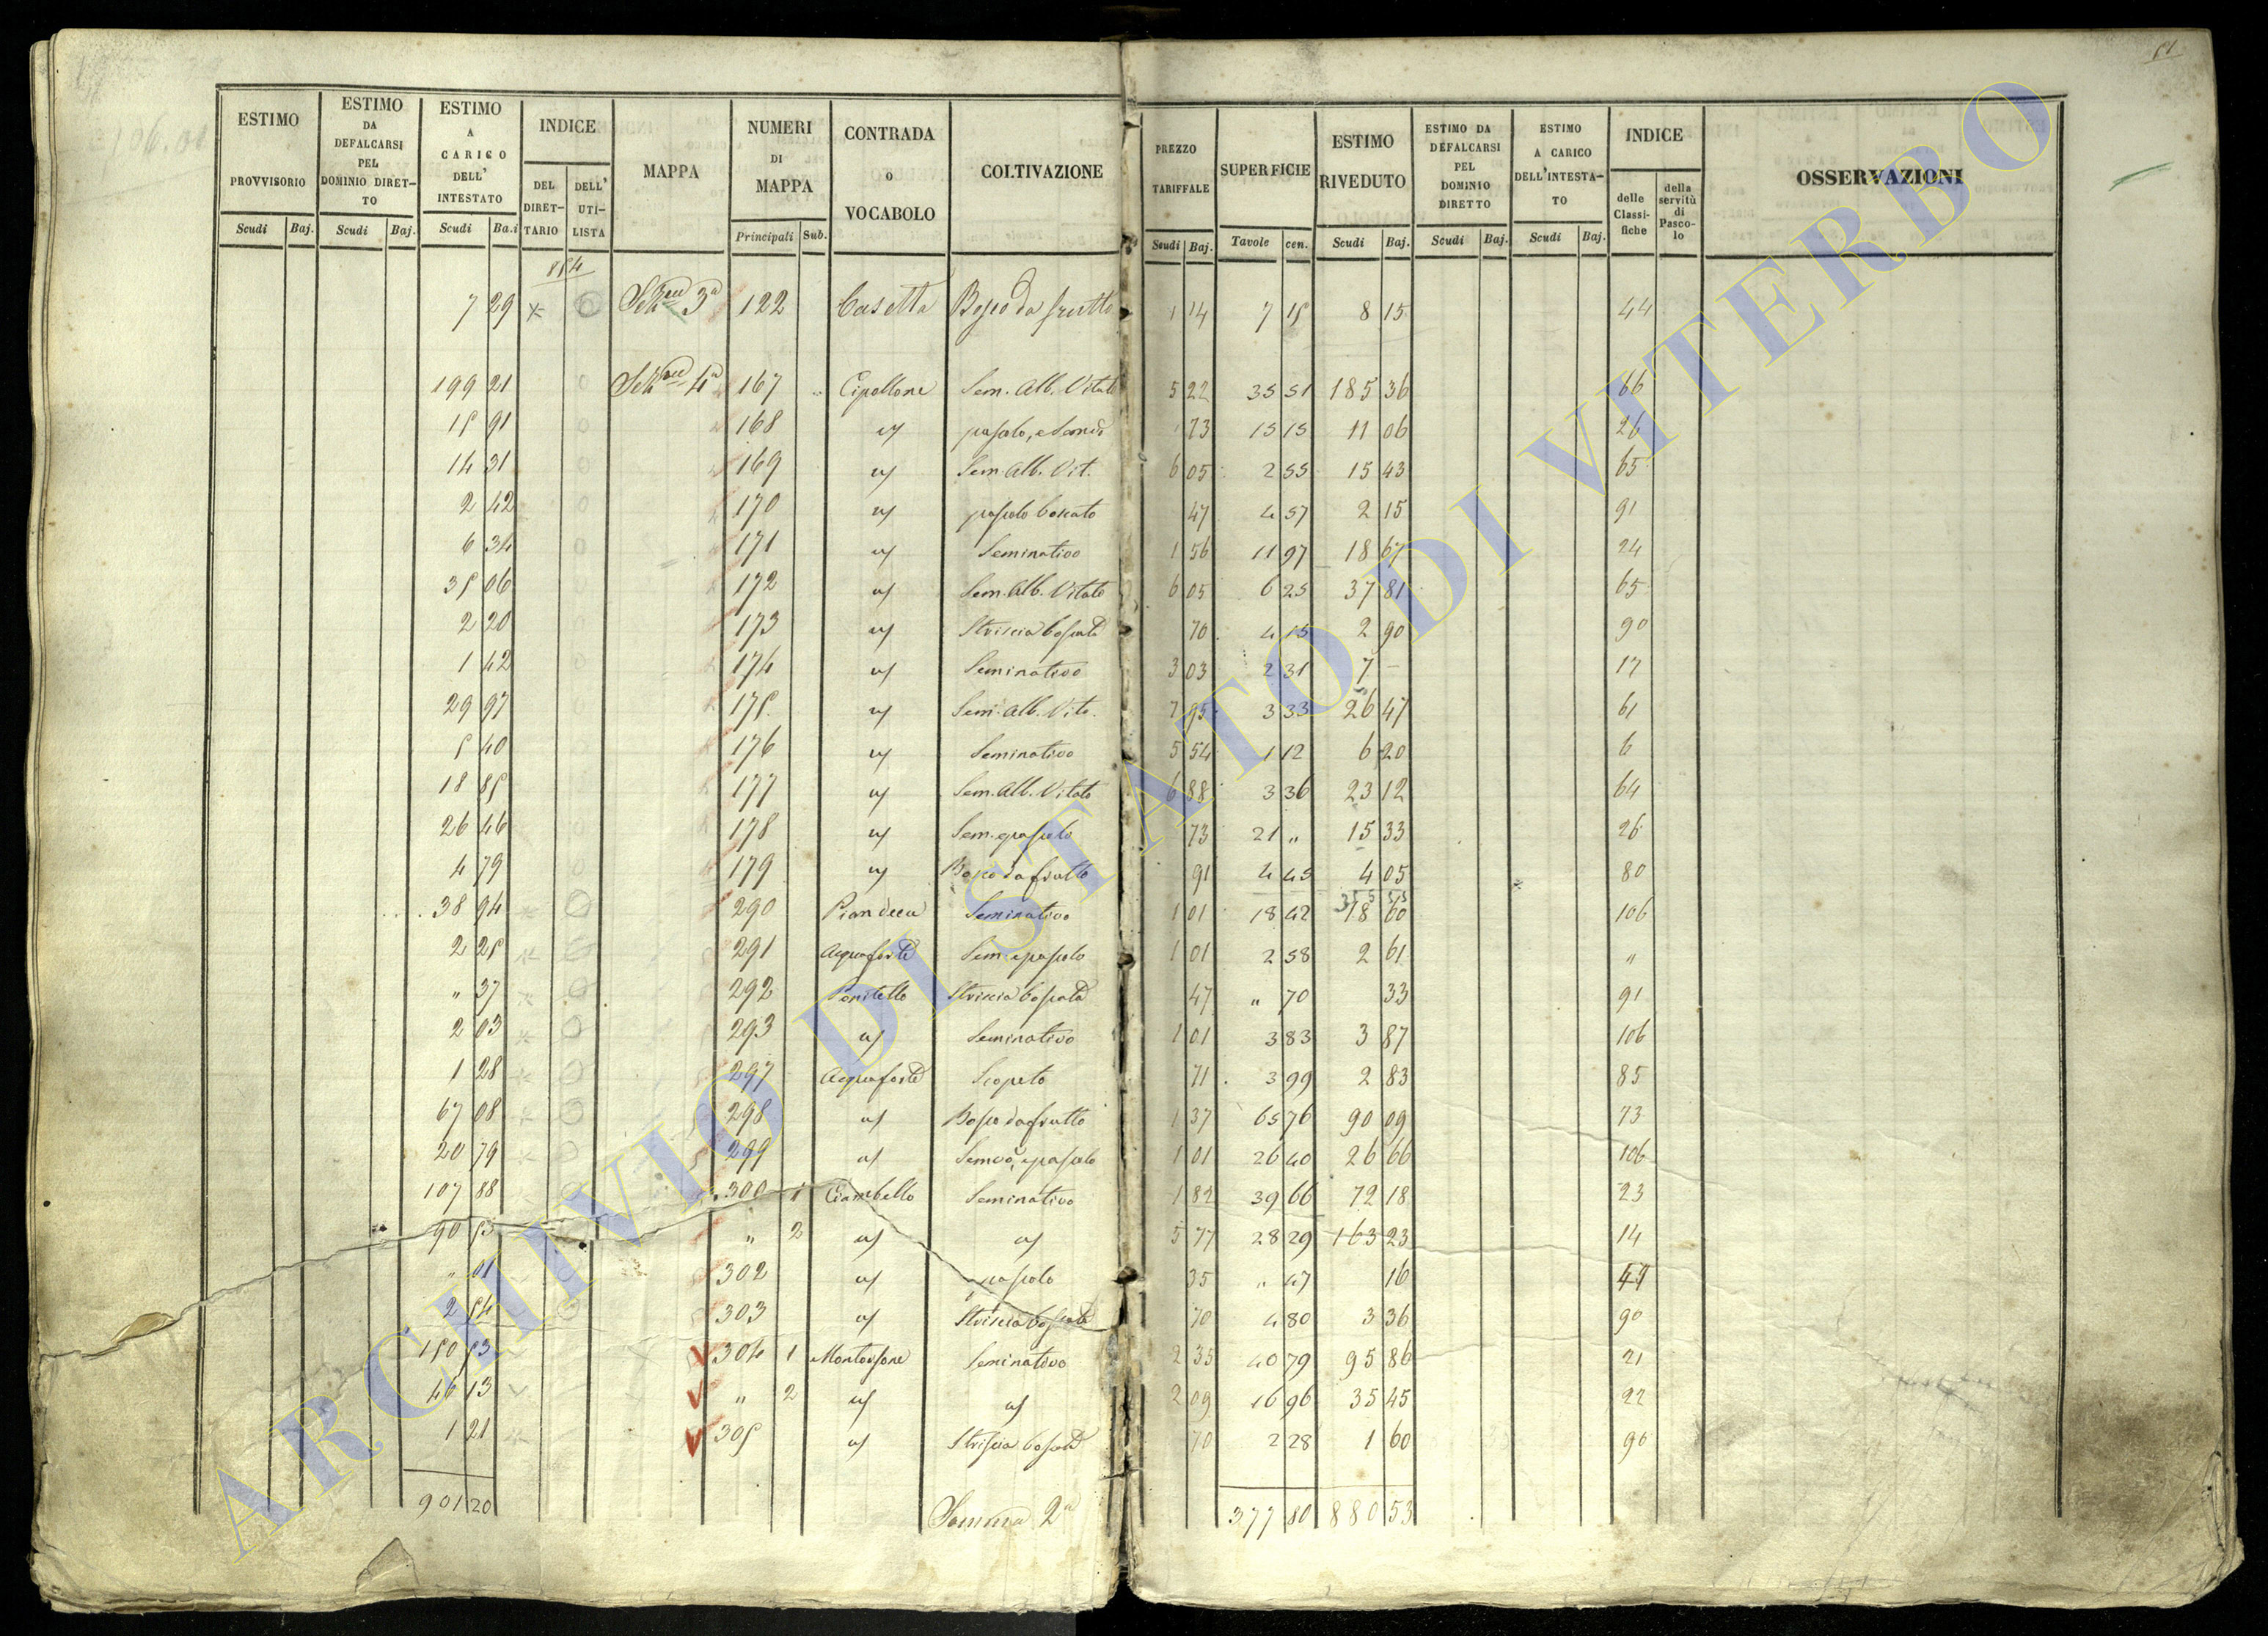 51
ESTIMO PROVVISORIO
ESTIMO DA DEFALCARSI PEL DOMINIO DIRET-TO
ESTIMO A CARICO DELL' INTESTATO
INDICE
DEL DIRET-TARIO
DELL' UTI-LISTA
MAPPA
NUMERI DI MAPPA
CONTRADA o VOCABOLO
COLTIVAZIONE
PREZZO TARIFFALE
SUPERFICIE
ESTIMO RIVEDUTO
ESTIMO DA DEFALCARSI PEL DOMINIO DIRETTO
ESTIMO A CARICO DELL'INTESTA-TO
INDICE
delle Classi-fiche
della servitù di Pasco-lo
OSSERVAZIONI
Scudi Baj. Scudi Baj. Scudi Ba.i Principali Sub. Scudi Baj. Tavole cen. Scudi Baj. Scudi Baj. Scudi Baj.
7 29 122 Casetta Bosco da frutto 1 14 7 15 8 15 44
199 21 167 Cipollone Sem. Alb. Vitato 5 22 35 51 185 36 66
15 91 168 " 73 15 15 11 06 26
14 31 169 " Sem. Alb. Vit. 6 05 2 55 15 43 65
2 42 170 " pascolo boscato 47 4 57 2 15 91
6 34 171 " Seminativo 1 56 11 97 18 67 24
35 06 172 " Sem. Alb. Vitato 6 05 6 25 37 81 65
2 20 173 " Striscia boscata 70 4 15 2 90 90
1 42 174 " Seminativo 3 03 2 31 7 – 17
29 97 175 " Sem. Alb. Vit. 7 95 3 33 26 47 61
5 40 176 " Seminativo 5 54 1 12 6 20 6
18 85 177 " Sem. Alb. Vitato 6 88 3 36 23 12 64
26 46 178 " Sem. e pascolo 73 21 " 15 33 26
4 79 179 " Bosco da frutto 91 4 45 4 05 80
38 94 290 Seminativo 1 01 18 42 18 60 106
2 25 291 Acquaforte Sem. e pascolo 1 01 2 58 2 61 "
" 37 292 Striscia boscata 47 " 70 33 91
2 03 293 " Seminativo 1 01 3 83 3 87 106
1 28 297 Acquaforte Scopeto 71 3 99 2 83 85
67 08 298 " Bosco da frutto 1 37 65 76 90 09 73
20 79 299 " Semvo, e pascolo 1 01 26 40 26 66 106
107 88 300 1 Ciambello Seminativo 1 82 39 66 72 18 23
90 53 " 2 " " 5 77 28 29 163 23 14
" 01 302 " pascolo 35 " 47 16 49
2 54 303 " Striscia boscata 70 4 80 3 36 90
150 53 304 1 Montorsone Seminativo 2 35 40 79 95 86 21
46 13 " 2 " " 2 09 16 96 35 45 22
1 21 305 " Striscia boscata 70 2 28 1 60 90
901 20 Somma 2a 377 80 880 53
ARCHIVIO DI STATO DI VITERBO